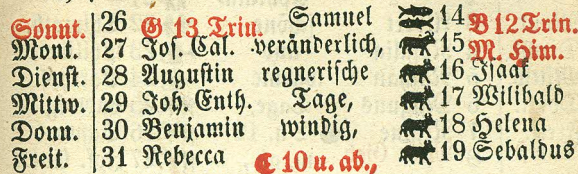 Sonnt. 26 G 13 Trin. Samuel 14 B 12 Trin.
Mont. 27 Jos. Cal. veränderlich, 15 M. Him.
Dienst. 28 Augustin regnerische 16 Isaak
Mittw. 29 Joh. Enth. Tage, 17 Wilibald
Donn. 30 Benjamin windig, 18 Helena
Freit. 31 Rebecca ☾ 10 u. ab., 19 Sebaldus